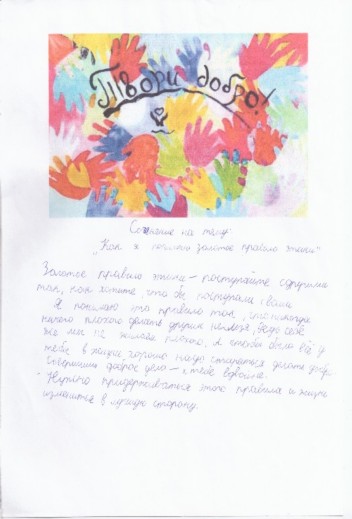 Твори добро!
Сочинение на тему:
„Как я понимаю золотое правило этики"
Золотое правило этики – поступайте с другими
так, как хотите, что бы поступали с вами.
Я понимаю это правило так, что никогда
ничего плохого делать другим нельзя, ведь себе
же мы не желаем плохого. А чтобы было всё у
тебя в жизни хорошо надо стараться делать добро.
Совершишь доброе дело – и тебе вдвойне.
Нужно придерживаться этого правила и жизнь
изменится в лучшую сторону.